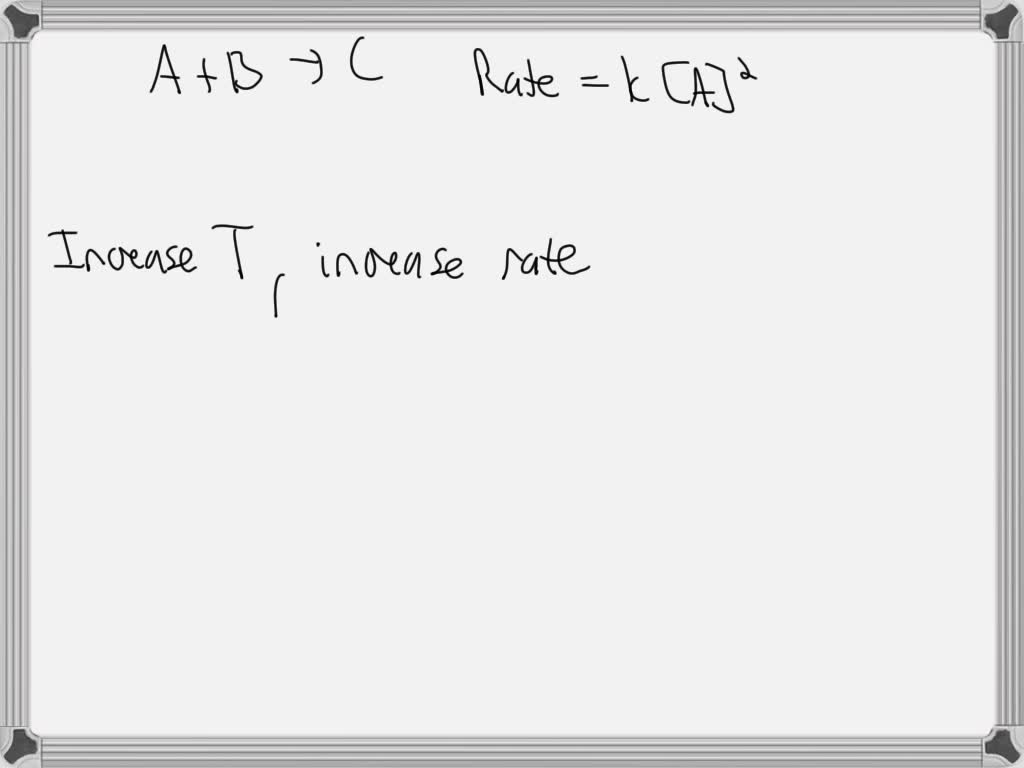 A + B → C Rate = k [A]²
Increase T, increase rate